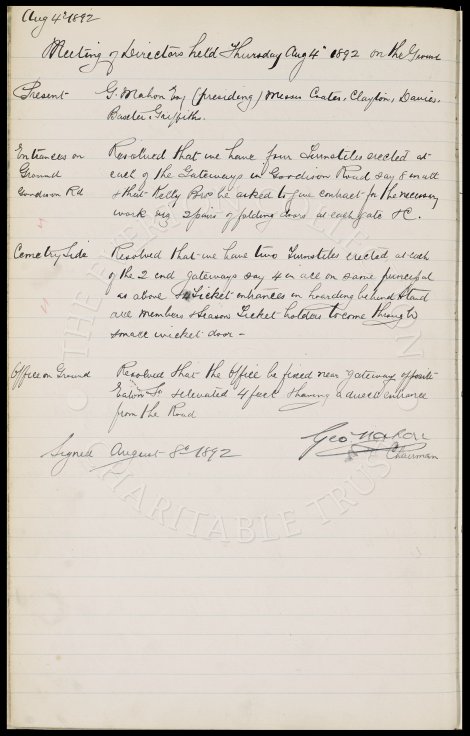 Aug 4th 1892
Meeting of Directors held Thursday Aug 4th 1892 on the Ground
Present G. Mahon Esq (presiding) Messrs Coates, Clayton, Davies,
Baxter, Griffiths.
Entrances on Resolved that we have four Turnstiles erected at
Ground each of the Gateways in Goodison Road say 8 in all
Goodison Rd & that Kelly Bros be asked to give contract for the necessary
work viz 2 pairs of folding doors at each gate &C.
Cemetry Side Resolved that we have two Turnstiles erected at each
of the 2 end gateways say 4 in all on same principal
as above & Ticket entrances in hoarding behind Stand
all members & Season Ticket holders to come through
small wicket door -
Office on Ground Resolved that the Office be fixed near gateway opposite
Eaton St & elevated 4 feet & having a direct entrance
from the Road
Signed August 8th 1892 Geo Mahon
Chairman
THE EVERTON COLLECTION
CHARITABLE TRUST